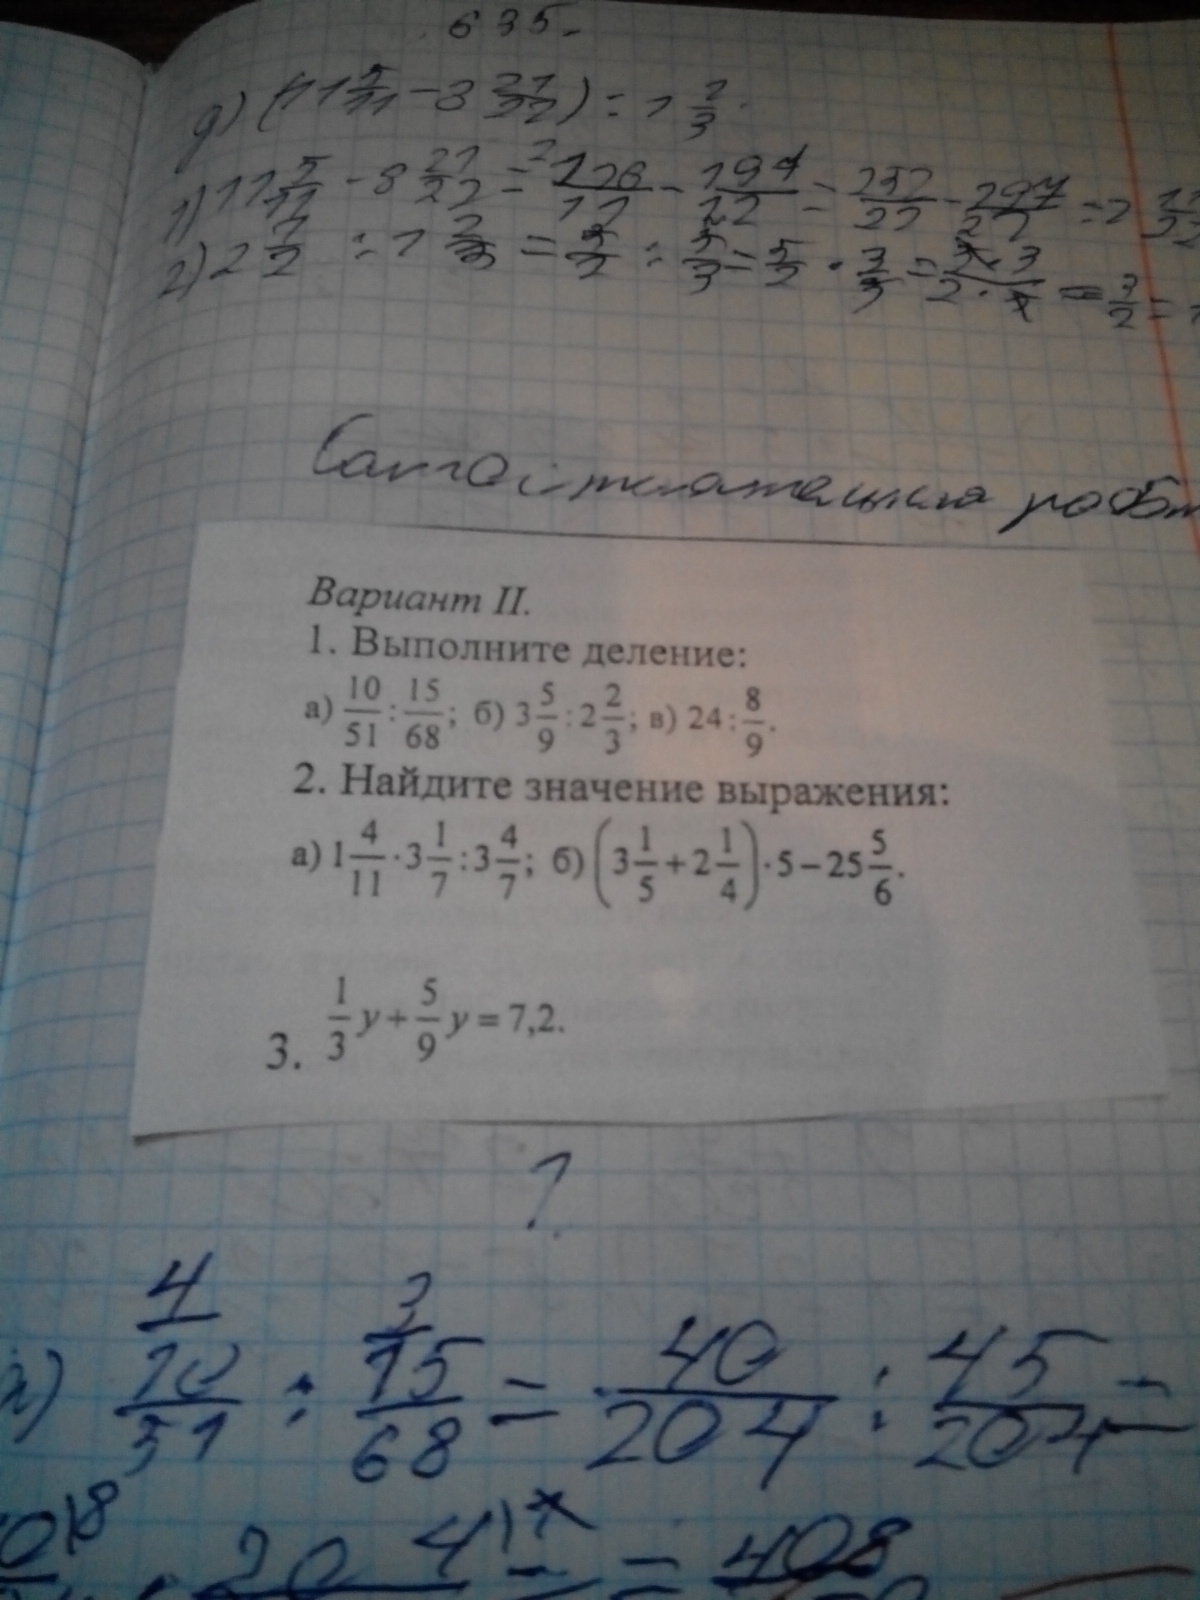 635.
д) (11 5/11 - 8 21/22) : 1 2/3.
1) 11 5/11 - 8 21/22 = 126/11 - 197/22 = 252/22 - 197/22 = 2
2) 2 1/2 : 1 2/3 = 5/2 : 5/3 = 5/2 · 3/5 = 5·3/2·5 = 3/2 =
Вариант II.
1. Выполните деление:
а) 10/51 : 15/68; б) 3 5/9 : 2 2/3; в) 24 : 8/9.
2. Найдите значение выражения:
а) 1 4/11 · 3 1/7 : 3 4/7; б) (3 1/5 + 2 1/4) · 5 − 25 5/6.
3. 1/3 y + 5/9 y = 7,2.
?
10/51 : 15/68 = 40/204 : 45/204 =
204 = 408